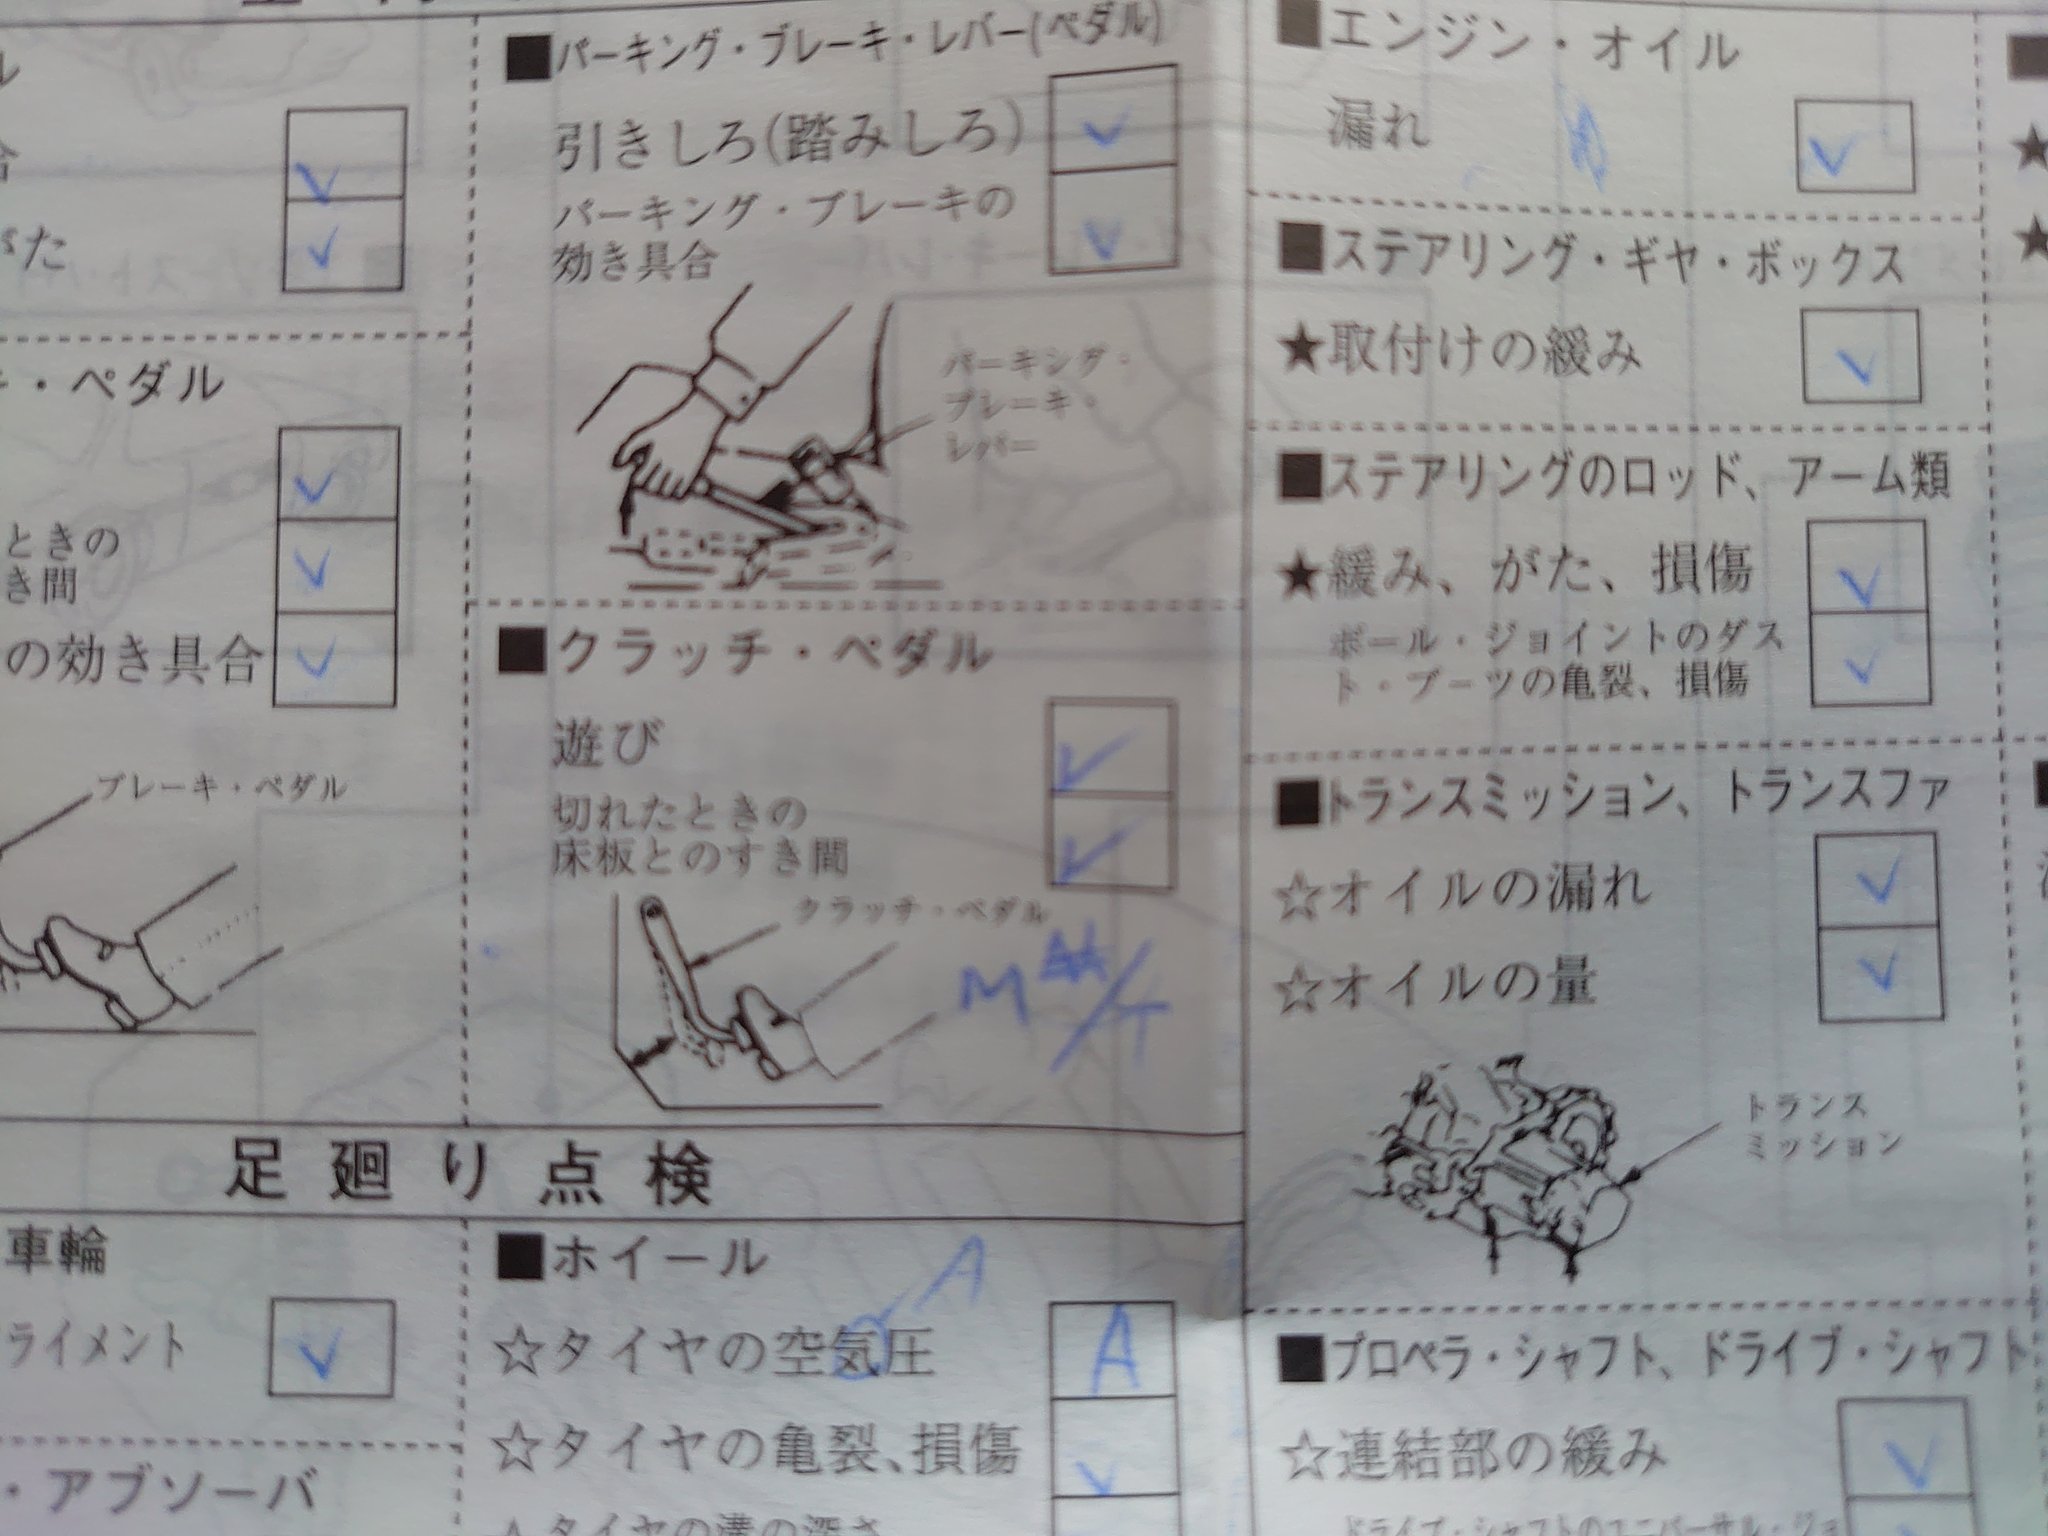 ル
合
がた
・ペダル
ときの
き間
の効き具合
ブレーキ・ペダル
■パーキング・ブレーキ・レバー(ペダル)
引きしろ(踏みしろ)
パーキング・ブレーキの
効き具合
パーキング・
ブレーキ・
レバー
■クラッチ・ペダル
遊び
切れたときの
床板とのすき間
クラッチ・ペダル
足廻り点検
車輪
ライメント
・アブソーバ
■ホイール
A
☆タイヤの空気圧 A
☆タイヤの亀裂、損傷
タイヤの溝の深さ
■エンジン・オイル
漏れ
■ステアリング・ギヤ・ボックス
★取付けの緩み
■ステアリングのロッド、アーム類
★緩み、がた、損傷
ボール・ジョイントのダス
ト・ブーツの亀裂、損傷
■トランスミッション、トランスファ
☆オイルの漏れ
☆オイルの量
トランス
ミッション
■プロペラ・シャフト、ドライブ・シャフト
☆連結部の緩み
ドライブ・シャフトのユニバーサル・ジョ
★
★